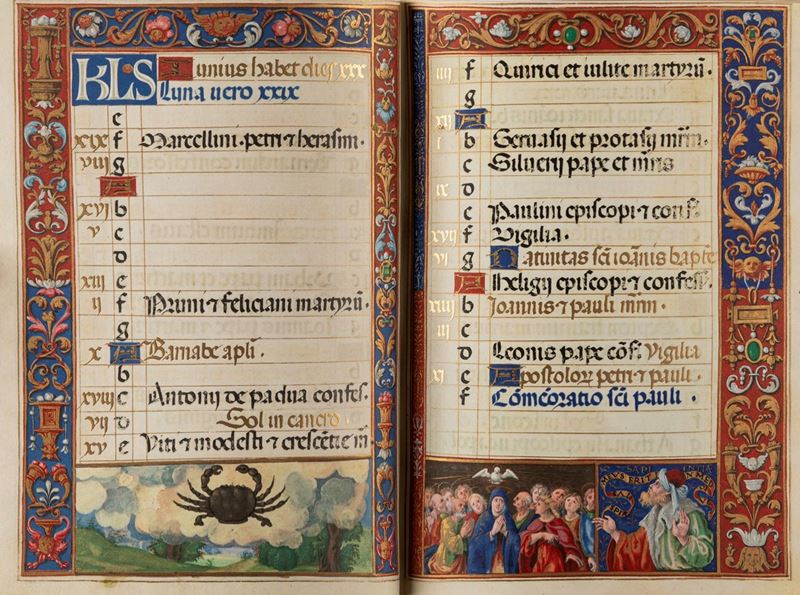 KLS Junius habet dies xxx
Luna uero xxix
e
xix f Marcellini. petri ⁊ herasmi.
viii g
A
xvi b
v c
D
xiii e
ii f Primi ⁊ feliciani martyrū.
g
x A Barnabe apli.
b
xviii c Antonij de padua confes.
vii D Sol in cancro
xv e Viti ⁊ modesti ⁊ crescētie m̄.
iiii f Quirici et iulite martyrū.
g
xii A
i b Geruasij et protasij m̄m.
c Siluerij pape et mris
ix D
e Paulini episcopi ⁊ conf.
xvii f Vigilia.
vi g Natiuitas sc̄i ioānis bapte
A ⁊ confess.
xiiii b Joannis ⁊ pauli m̄m.
iii c
D Leonis pape cōf. Vigilia
xi e Apostolor petri ⁊ pauli.
f Cōmēoratio sc̄i pauli.